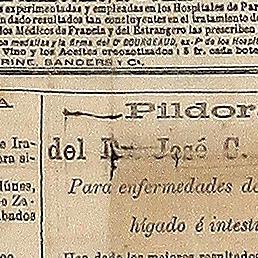 experimentadas y empleadas en los Hospitales de Par
dado resultados tan concluyentes en el tratamiento de
los Médicos de Francia y del Estrangero las prescriben
medallas y la firma del Dr BOURGEAUD, ex-Pº de los Hospit
Vino y los Aceites creozotizados : 5 fr. cada bote
RINE, SANDERS y Cª.
A
de Ira-
era si-
lúnes,
e Za-
bados
Pildora
del Dr. José C.
Para enfermedades de
hígado é intesti
Han dado los mejores resultados